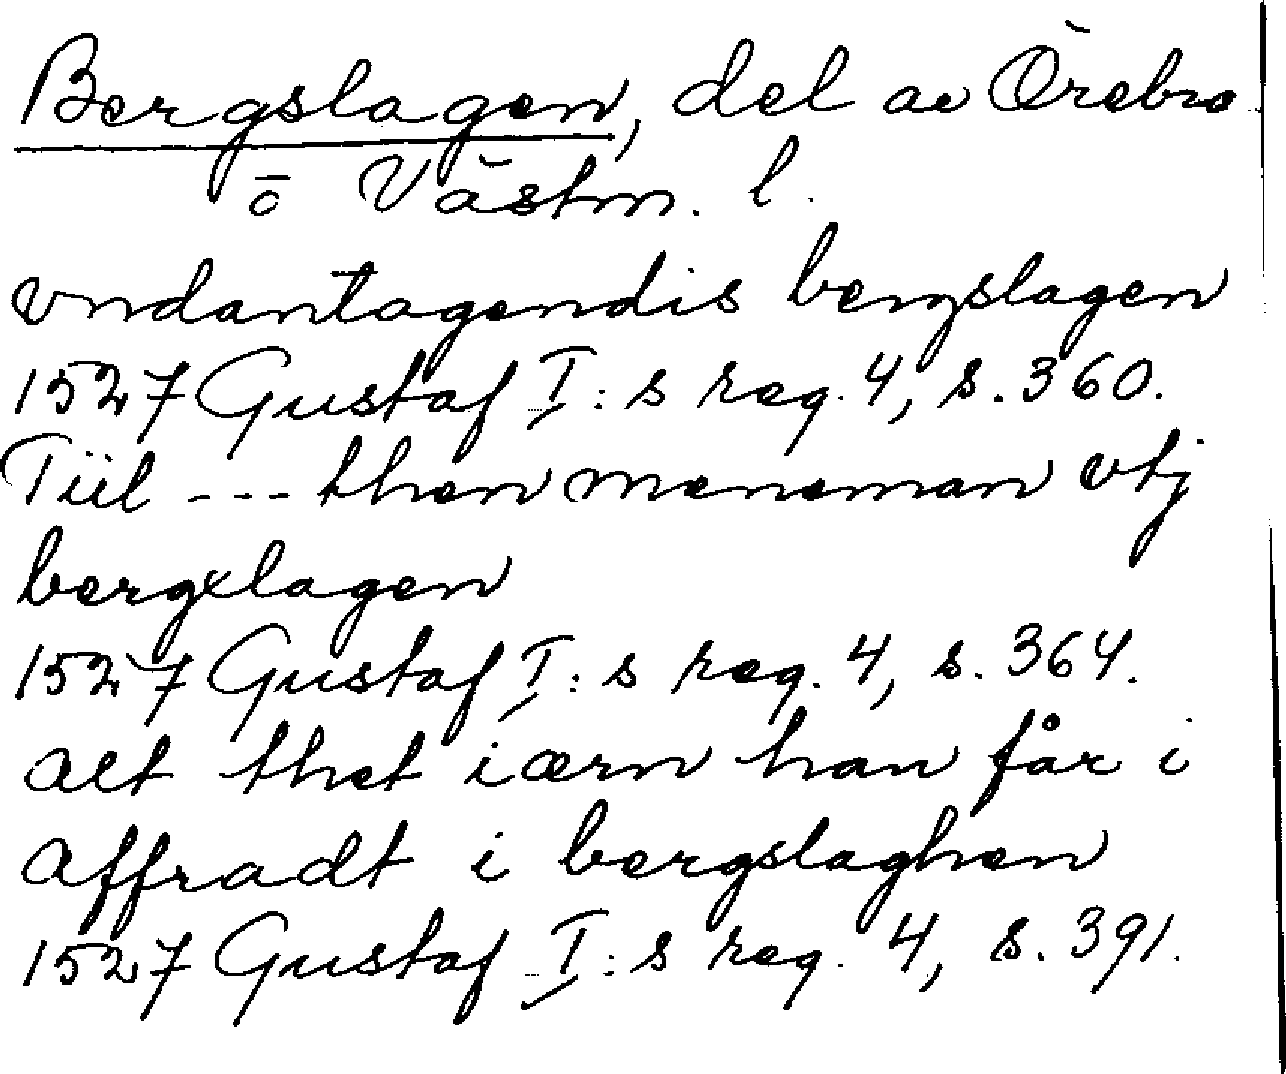 Bergslagen, del av Örebro
o Västm. l.
vndantagendis bergslagen
1527 Gustaf I:s reg. 4, s. 360.
Tiil --- then meneman vtj
bergxlagen
1527 Gustaf I:s reg. 4, s. 364.
alt thet iærn han får i
affradt i bergslaghen
1527 Gustaf I:s reg. 4, s. 391.